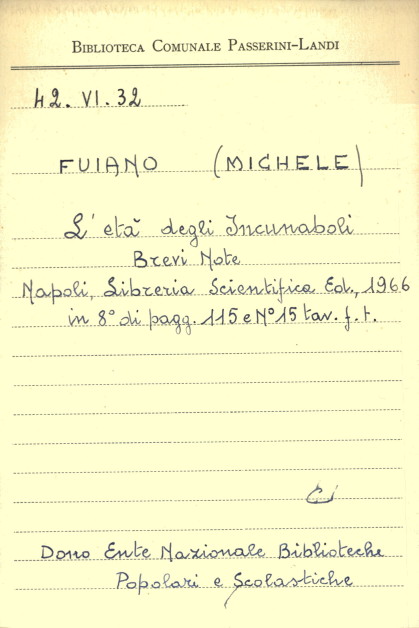 BIBLIOTECA COMUNALE PASSERINI-LANDI
42. VI. 32
FUIANO (MICHELE)
L'età degli Incunaboli
Brevi Note
Napoli, Libreria Scientifica Ed., 1966
in 8° di pagg. 115 e N° 15 tav. f. t.
Dono Ente Nazionale Biblioteche
Popolari e Scolastiche